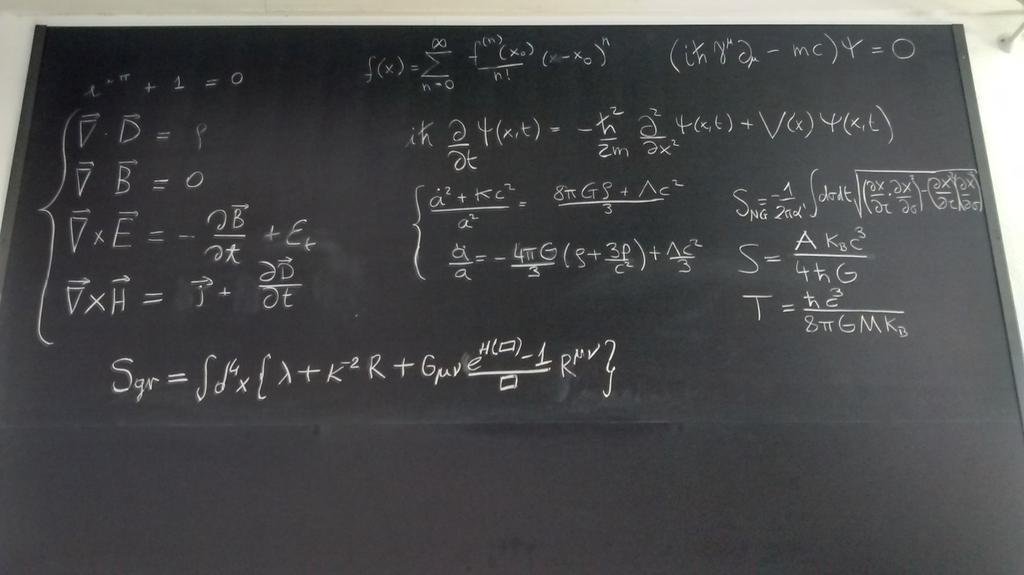 e^{iπ} + 1 = 0
f(x) = ∑_{n=0}^{∞} f^{(n)}(x₀)/n! (x-x₀)^n
(iħγ^μ∂_μ - mc)Ψ = 0
∇⃗ · D⃗ = ρ
∇⃗ B⃗ = 0
∇⃗ × E⃗ = - ∂B⃗/∂t + E_t
∇⃗ × H⃗ = J⃗ + ∂D⃗/∂t
iħ ∂/∂t Ψ(x,t) = - ħ²/2m ∂²/∂x² Ψ(x,t) + V(x) Ψ(x,t)
ȧ² + Kc²/a² = 8πGρ + Λc²/3
ä/a = - 4πG/3 (ρ + 3p/c²) + Λc²/3
S_{NG} = - 1/2πα' ∫dσdτ √
S = A K_B c³/4ħG
T = ħc³/8πGMK_B
S_{gr} = ∫d⁴x { λ + K^{-2} R + G_{μν} e^{H(□)} - 1/□ R^{μν} }